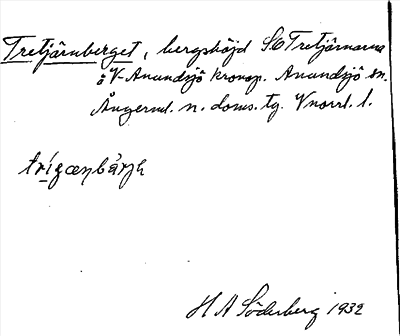 Tretjärnberget, bergshöjd SO Tretjärnarna
å V Anundsjö kronop. Anundsjö sn.
Ångerml. n. doms. tg. Vnorrl. l.
H A Söderberg 1932